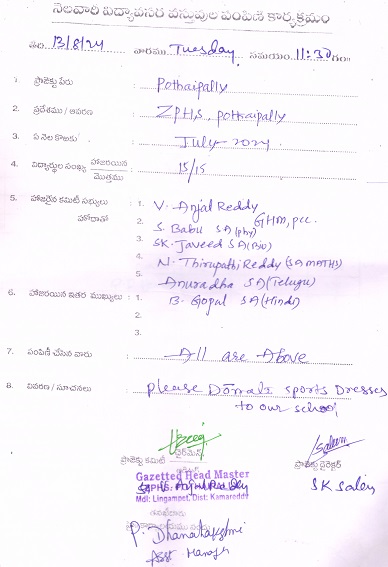 నెలవారి విద్యావసర వస్తువుల పంపిణి కార్యక్రమం
తేది. 13/8/24 వారము Tuesday సమయం. 11:30 గం॥
1. ప్రాజెక్టు పేరు : Pothaipally
2. ప్రదేశము / ఆవరణ : ZPHS, pothaipally
3. ఏ నెల కొఱకు : July-2024
4. విద్యార్థుల సంఖ్య హాజరయిన / మొత్తము : 15/15
5. హాజరైన కమిటీ సభ్యులు : 1. V. Anjal Reddy
హోదాతో GHM, pcc.
2. S. Babu SA (phy)
3. SK. Javeed SA (Bio)
4. N. Thirupathi Reddy (SA MATHS)
5. Anuradha SA (Telugu)
6. హాజరయిన ఇతర ముఖ్యులు : 1. B. Gopal SA (Hindi)
2.
3.
7. పంపిణీ చేసిన వారు : All are Above
8. వివరణ / సూచనలు : please Donate sports Dresses
to our school
ప్రాజెక్టు కమిటీ చైర్మెన్ ప్రాజెక్టు డైరెక్టర్
Gazetted Head Master
SK Salem
Mdl: Lingampet, Dist: Kamareddy
P. Dhanalakshmi